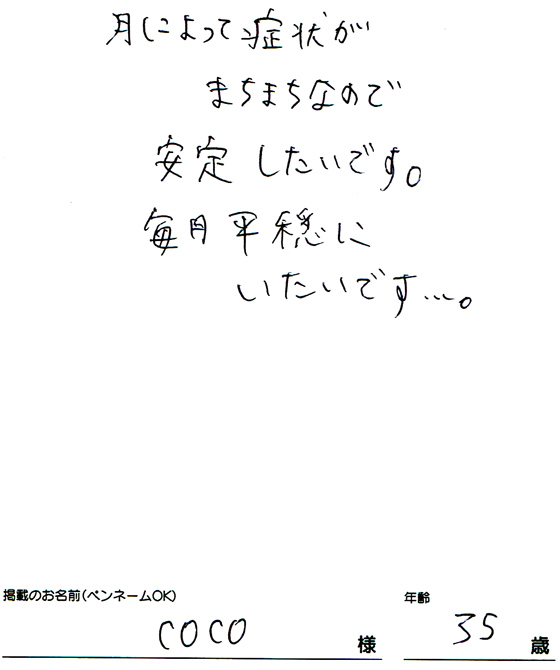 月によって症状が
まちまちなので
安定したいです。
毎月平穏に
いたいです…。
掲載のお名前(ペンネームOK)
年齢
COCO 様
35 歳